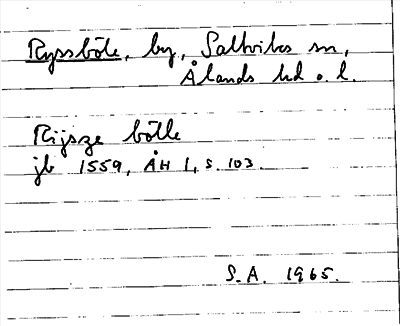 Ryssböle, by, Saltviks sn,
Ålands hd o. l.
Rijsze bölle
jb 1559, ÅH 1, s. 103.
S.A. 1965.